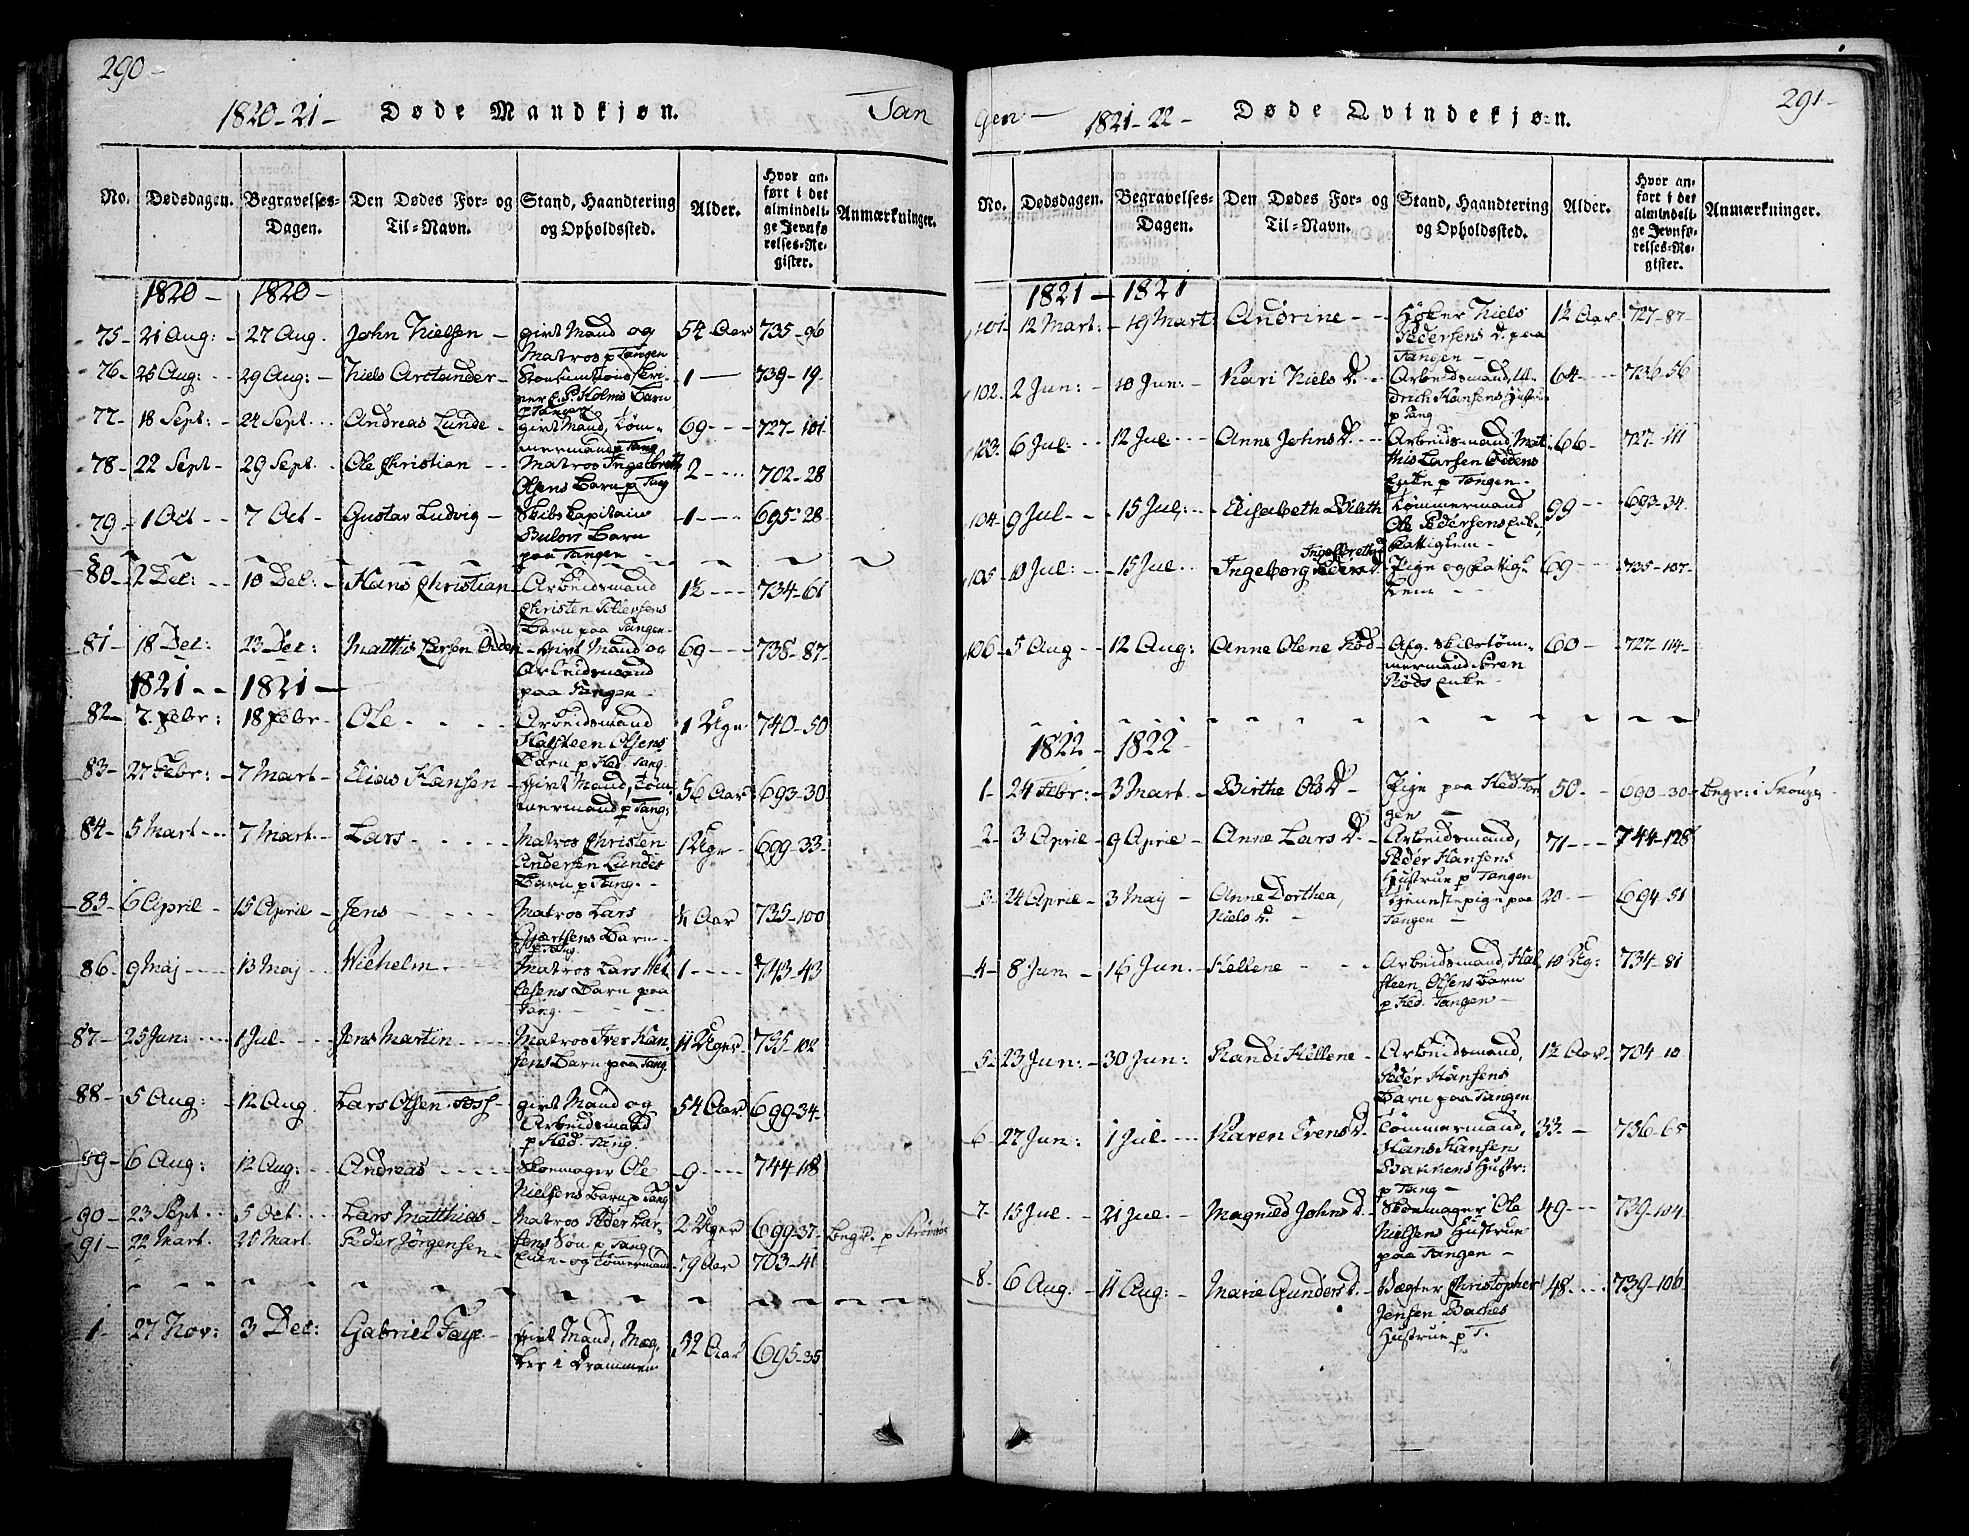 290-
1820-21- Døde Mandkjøn. Tan
No. Dødsdagen. Begravelses-Dagen. Den Dødes For- og Til-Navn. Stand, Haandtering og Opholdssted. Alder. Hvor anført i det almindelige Jevnførelses-Register. Anmærkninger.
1820- 1820-
75- 21 Aug: - 27 Aug. John Nielsen - givt Mand og Matros p Tangen 54 Aar 735-96
76- 25 Aug: - 29 Aug: - Niels Arctander - Holms Barn p Tangen 1 - 739-19
77- 18 Sept: - 24 Sept. Andreas Lunde - givt Mand, Tømmermand p Tang 69 - 727-101
78- 22 Sept - 29 Sept. Ole Christian - Matros Ingebreth Olsens Barn p Tang 2 - 702-28
79- 1 Oct - 7 Oct - Gustav Ludvig - Skibs Capitain Barn paa Tangen 1 - 695-28
80- 2 Dec: - 10 Dec: - Hans Christian - Arbeidsmand Christen Barn paa Tangen 1½ - 734-61
81- 18 Dec: 23 Dec: - Matthis Larsen Odden - givt Mand og Arbeidsmand paa Tangen 69 - 738-87
1821 - 1821 -
82- 7 Febr: 18 Febr - Ole - Arbeidsmand Halsteen Olsens Barn p Ned. Tang. 1 Uge 740-50
83- 27 Febr: - 7 Mart - Elias Hansen - givt Mand, Tømmermand p Tang: 56 Aar 693-30
84- 5 Mart - 7 Mart. - Lars - Matros Christen Andersen Lundes Barn p Tang. 1 Uge - 699-33
85- 6 April - 15 April - Jens - Matros Lars Barn p Tang. Aar 735-100
86- 9 Maj - 13 Maj - Wilhelm - Matros Lars Barn paa Tang. 1 - 743-43
87- 25 Jun: - 1 Jul - Jens Martin - Matros Iver Hansens Barn paa Tang 11 Uger 735-102
88- 5 Aug: - 12 Aug. Lars Olsen - givt Mand og Arbeidsmand p Ned. Tang. 54 Aar 699-34
89- 6 Aug: 12 Aug: - Andreas - Skomager Ole Nielsens Barn p Tang 9 - 744-118
90- 23 Sept. 5 Oct. Lars Matthias - Matros Peder Larsens Søn p Tang. 2 Uger 699-37 begr. p Strømsøe
91- 22 Mart. 28 Mart Peder Jørgensen - og Tømmermand 79 Aar 703-41
1- 27 Nov: 3 Dec: Gabriel Faye - givt Mand, i Drammen 52 Aar 695-35
gen - 1821-22- Døde Qvindekjøn. 291-
No. Dødsdagen. Begravelses-Dagen. Den Dødes For- og Til-Navn. Stand, Haandtering og Opholdssted. Alder. Hvor anført i det almindelige Jevnførelses-Register. Anmærkninger.
1821 - 1821
101- 12 Mart: - 19 Mart: Andrine - Høker Niels Pedersens D. paa Tangen - 1½ Aar 727-87
102- 2 Jun: - 10 Jun: - Kari Niels D. - Arbeidsmand, Uldrich Hansens Hustrue p Tang 64 - 736-56
103- 6 Jul: - 12 Jul - Anne Johns D. - Arbeidsmand, Matthis Larsen Oddens Enke p Tangen - 66 - 727-111
104- 9 Jul - 15 Jul: - Elisabeth Tømmermand Ole Pedersens Enke, Fattiglem - 99 - 693-34
105- 10 Jul: - 15 Jul - Ingeborg Ingebretts D. Pige og Fattiglem - 69 - 735-107
106- 5 Aug - 12 Aug: Anne Olene Rød - Afg. Skibstømmermand Søren Røds Enke - 60 - 727-114
1822 - 1822
1- 24 Febr: - 3 Mart. - Birthe Ols D - Pige paa Ned. Tangen 50 - 690-30 - Begr: i
2- 3 April - 9 April - Anne Lars D. - Arbeidsmand, Peder Hansens Hustrue p Tangen 71 - 744-128
3- 24 April - 3 Maj - Anne Dorthea, Niels D. - Tjenestepige paa Tangen - 20 - 694-51
4- 8 Jun - 16 Jun. - Hellene - Arbeidsmand, Halsteen Olsens Barn p Ned. Tangen - 10 Ug: 734-81
5- 23 Jun: - 30 Jun: Randi Hellene - Arbeidsmand, Peder Hansens Barn paa Tangen 1½ Aar 704-10
6- 27 Jun: 1 Jul - Karen Evens D. Tømmermand, Hans Hansen Hustr: p Tang - 33 - 736-65
7- 15 Jul - 21 Jul - Magnild Johns D. - Skomager Ole Nielsens Hustrue paa Tangen - 49 - 739-104
8- 6 Aug. 11 Aug: - Marie Gunders D. - Vægter Christopher Jensen Baches Hustrue p T. 48 - 739-106